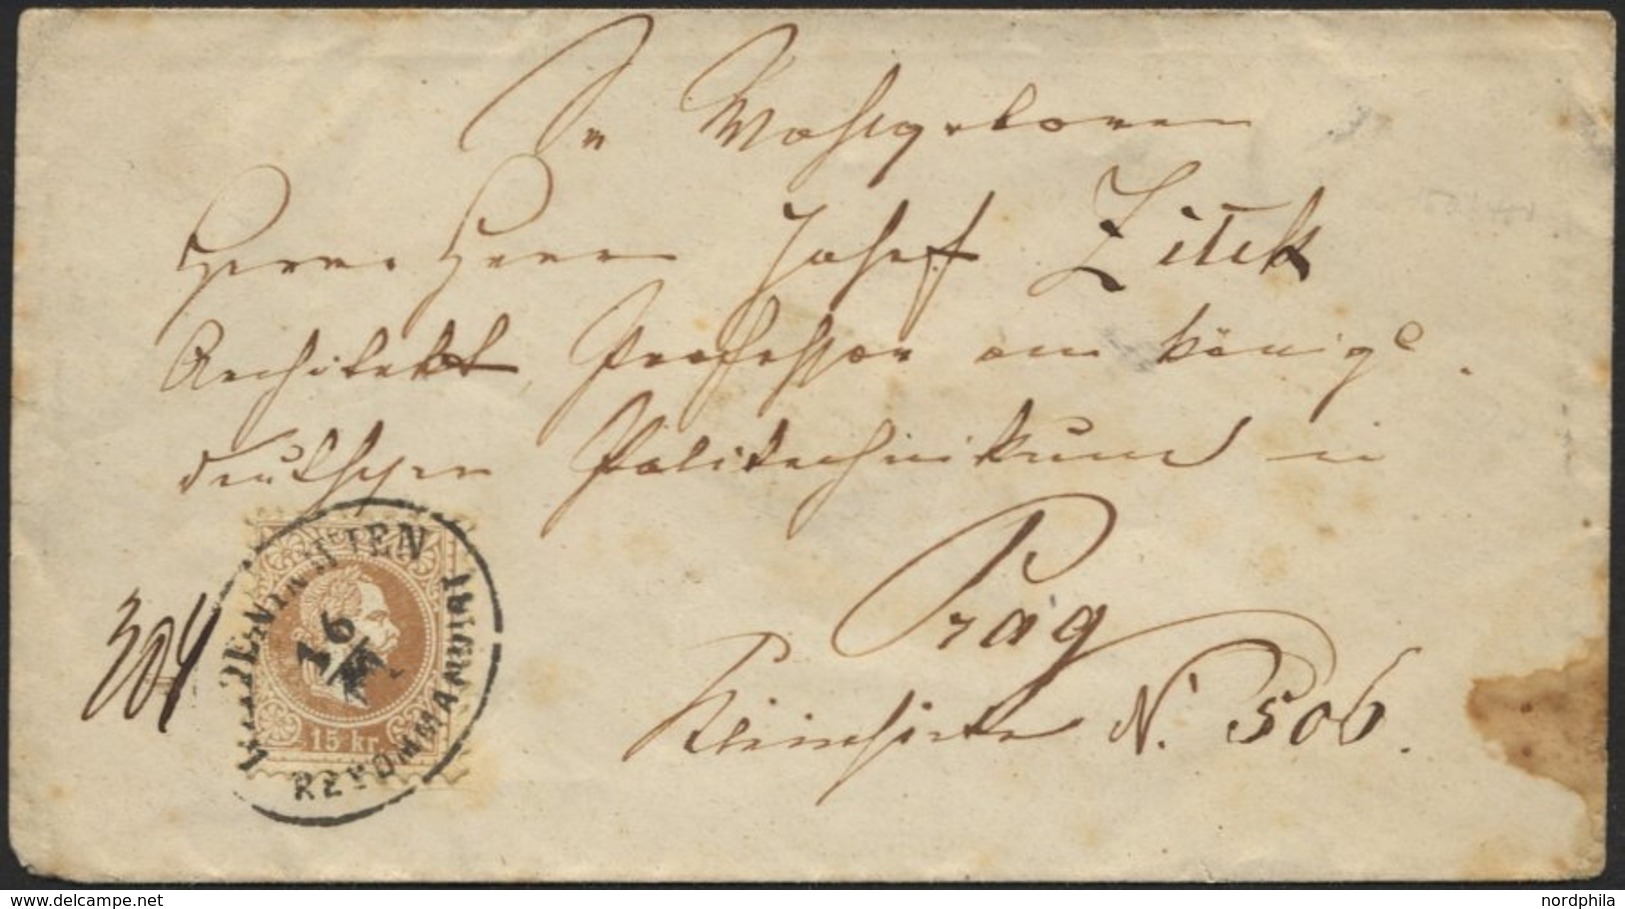 Sr Wohlgeboren
Herrn Herrn Josef Zitek
Architekt, Professor am königl.
deutschen Politechnikum in
Prag
Kleinseite N. 506.
304
16
RECOMMANDIRT
15 kr
www.delcampe.net
nordphila